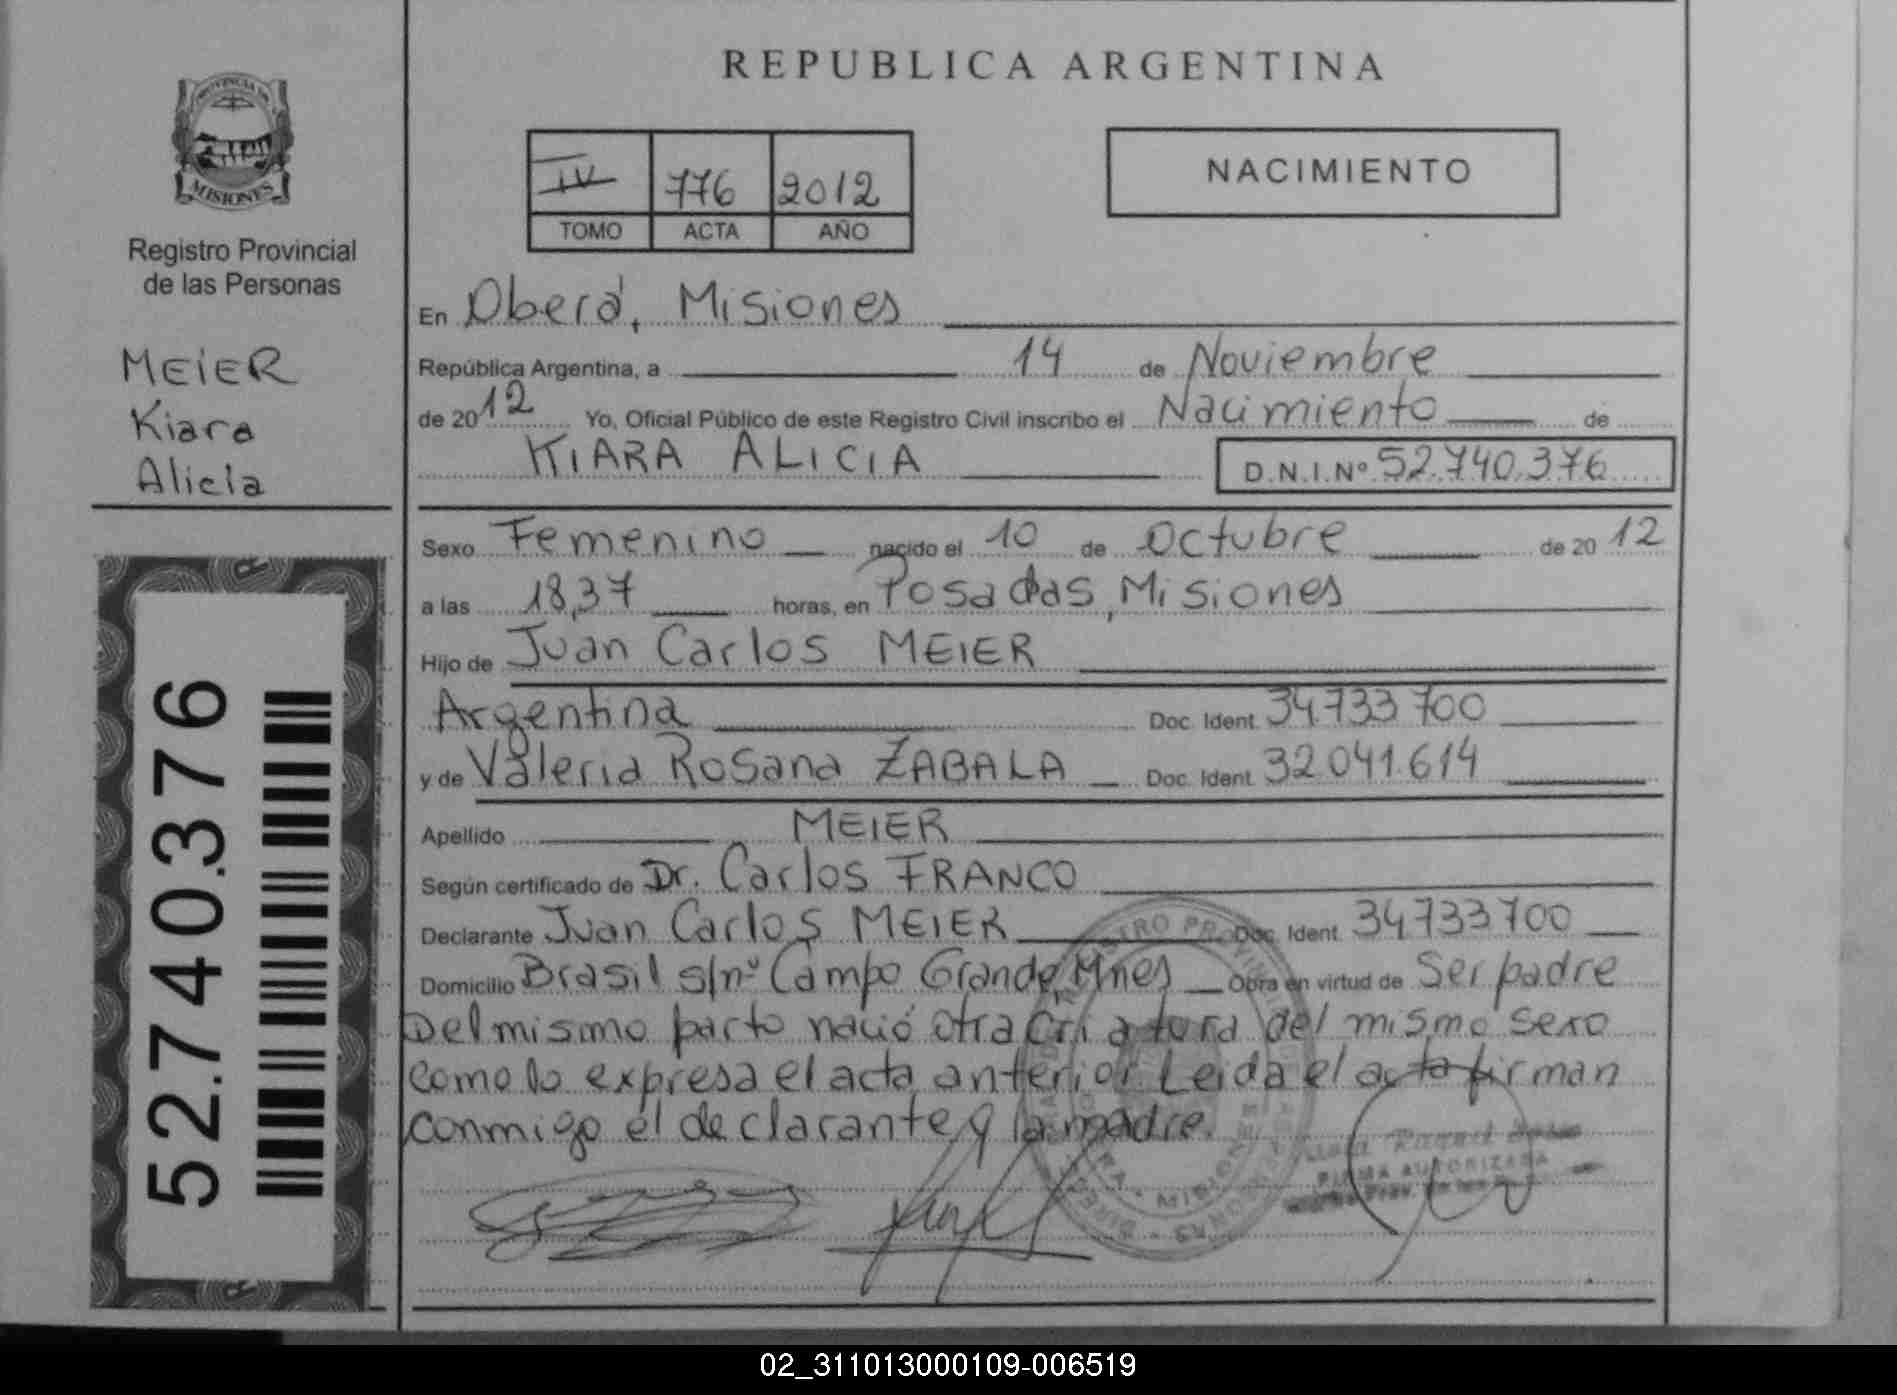 REPUBLICA ARGENTINA
PROVINCIA DE
MISIONES
Registro Provincial
de las Personas
MEIER
Kiara
Alicia
IV 776 2012
TOMO ACTA AÑO
NACIMIENTO
En Oberá, Misiones
República Argentina, a 14 de Noviembre
de 2012 Yo, Oficial Público de este Registro Civil inscribo el Nacimiento de
KIARA ALICIA D.N.I.Nº 52.740.376
Sexo Femenino nacido el 10 de Octubre de 2012
a las 18,37 horas, en Posadas, Misiones
Hijo de Juan Carlos MEIER
Argentina Doc. Ident. 34.733.700
y de Valeria Rosana ZABALA Doc. Ident. 32.041.614
Apellido MEIER
Según certificado de Dr. Carlos FRANCO
Declarante Juan Carlos MEIER Doc. Ident. 34.733.700
Domicilio Brasil s/nº Campo Grande, Mnes Obra en virtud de Ser padre
Del mismo parto nació otra criatura del mismo sexo
como lo expresa el acta anterior Leida el acta firman
conmigo el declarante y la madre.
FIRMA AUTORIZADA
52.740.376
02_311013000109-006519